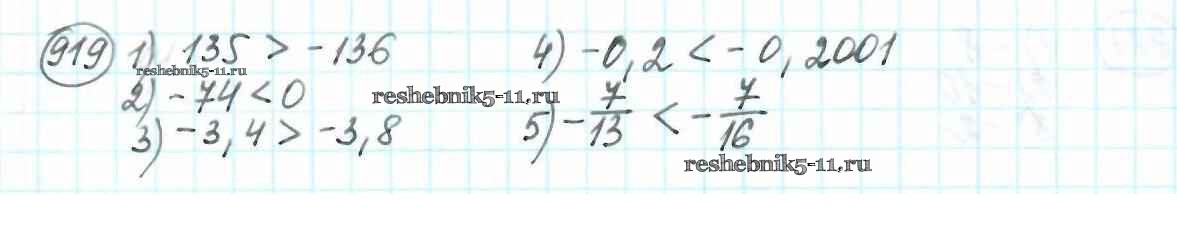 919 1) 135 > -136
reshebnik5-11.ru
2) -74 < 0
3) -3,4 > -3,8
4) -0,2 < -0,2001
reshebnik5-11.ru
5) -7/13 < -7/16
reshebnik5-11.ru